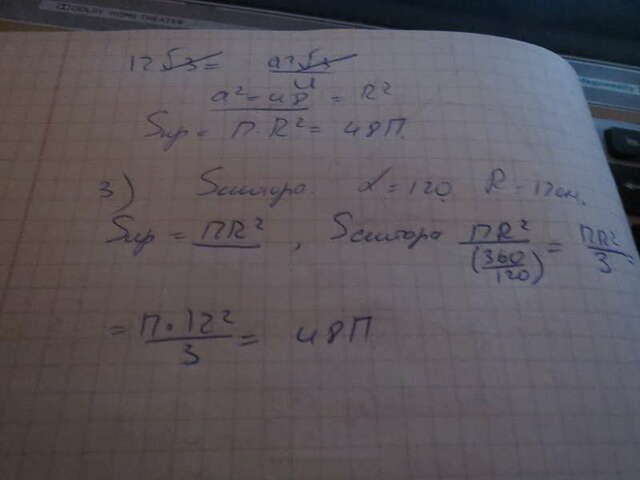 DOLBY HOME THEATER
12√3 = a²√3/4
a² = 48 = R²
Sкр = П·R² = 48П.
3) Sсектора α = 120 R = 12см.
Sкр = ПR², Sсектора ПR²/(360/120) = ПR²/3 =
= П·12²/3 = 48П